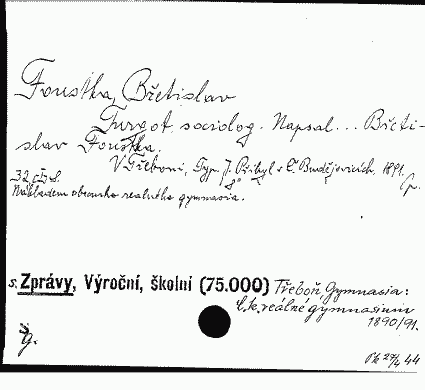 Foustka, Břetislav
Turgot, sociolog. Napsal... Břeti-
slav Foustka.
V Třeboni, Typ. J. Přibyl v Č. Budějovicích, 1891.
32 str. 8°
Nákladem obecního realného gymnasia.
s. Zprávy, Výroční, školní (75.000) Třeboň, Gymnasia:
C.k. reálné gymnasium
1890/91.
44